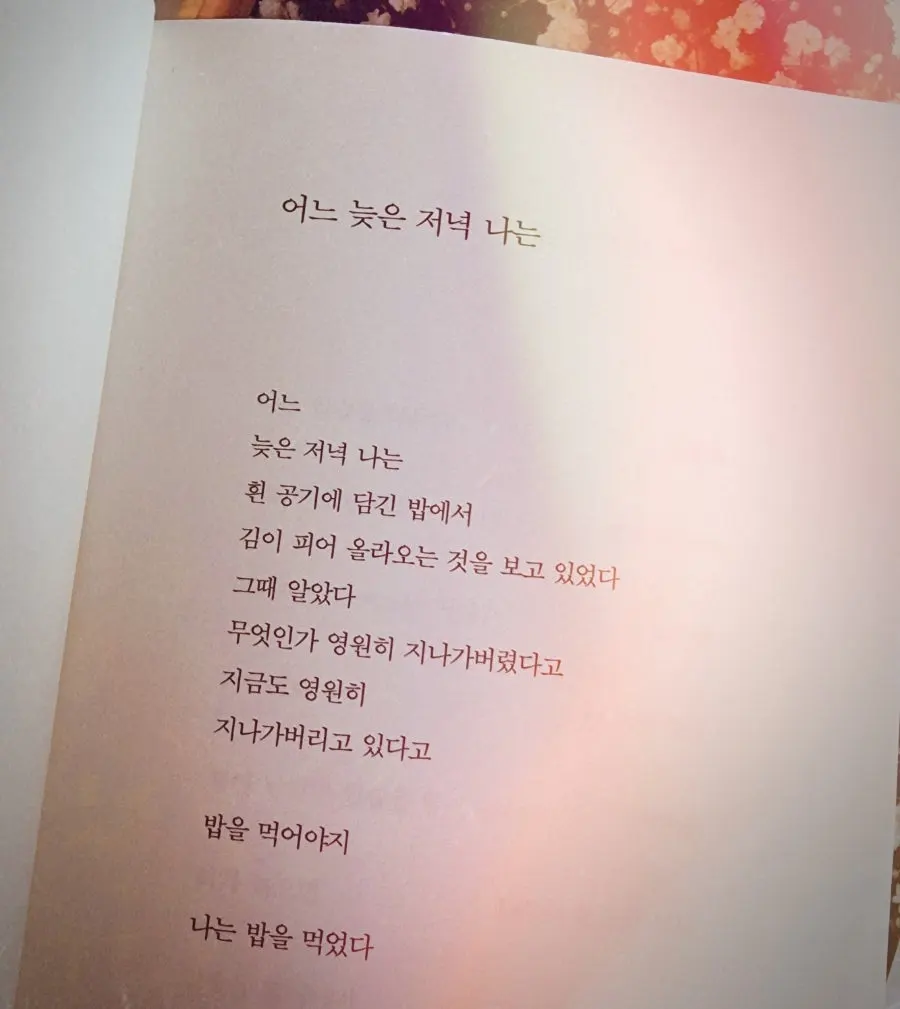 어느 늦은 저녁 나는
어느
늦은 저녁 나는
흰 공기에 담긴 밥에서
김이 피어 올라오는 것을 보고 있었다
그때 알았다
무엇인가 영원히 지나가버렸다고
지금도 영원히
지나가버리고 있다고
밥을 먹어야지
나는 밥을 먹었다